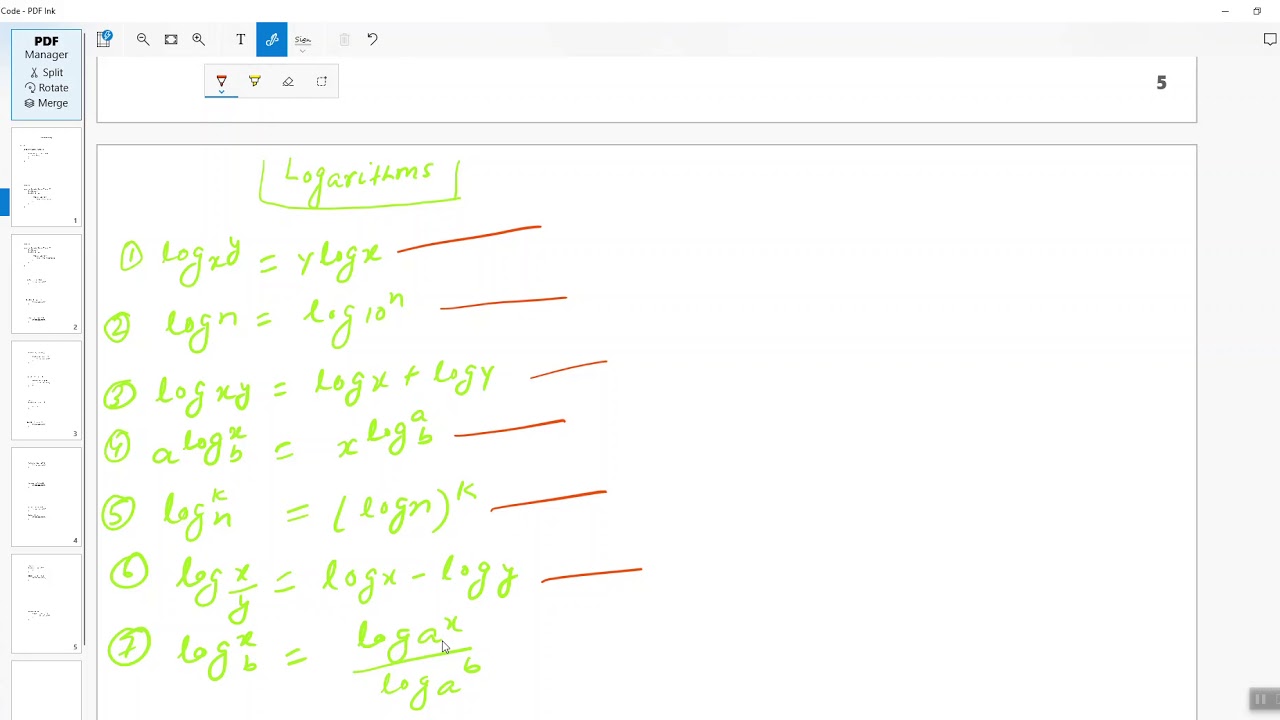 Code - PDF Ink
PDF
Manager
Split
Rotate
Merge
T
Sign
5
1
2
3
4
5
Logarithms
① log x^y = y log x
② log n = log 10^n
③ log xy = log x + log y
④ a^(log_b^x) = x^(log_b^a)
⑤ log^k n = (log n)^k
⑥ log x/y = log x - log y
⑦ log_b^x = log a^x / log a^b